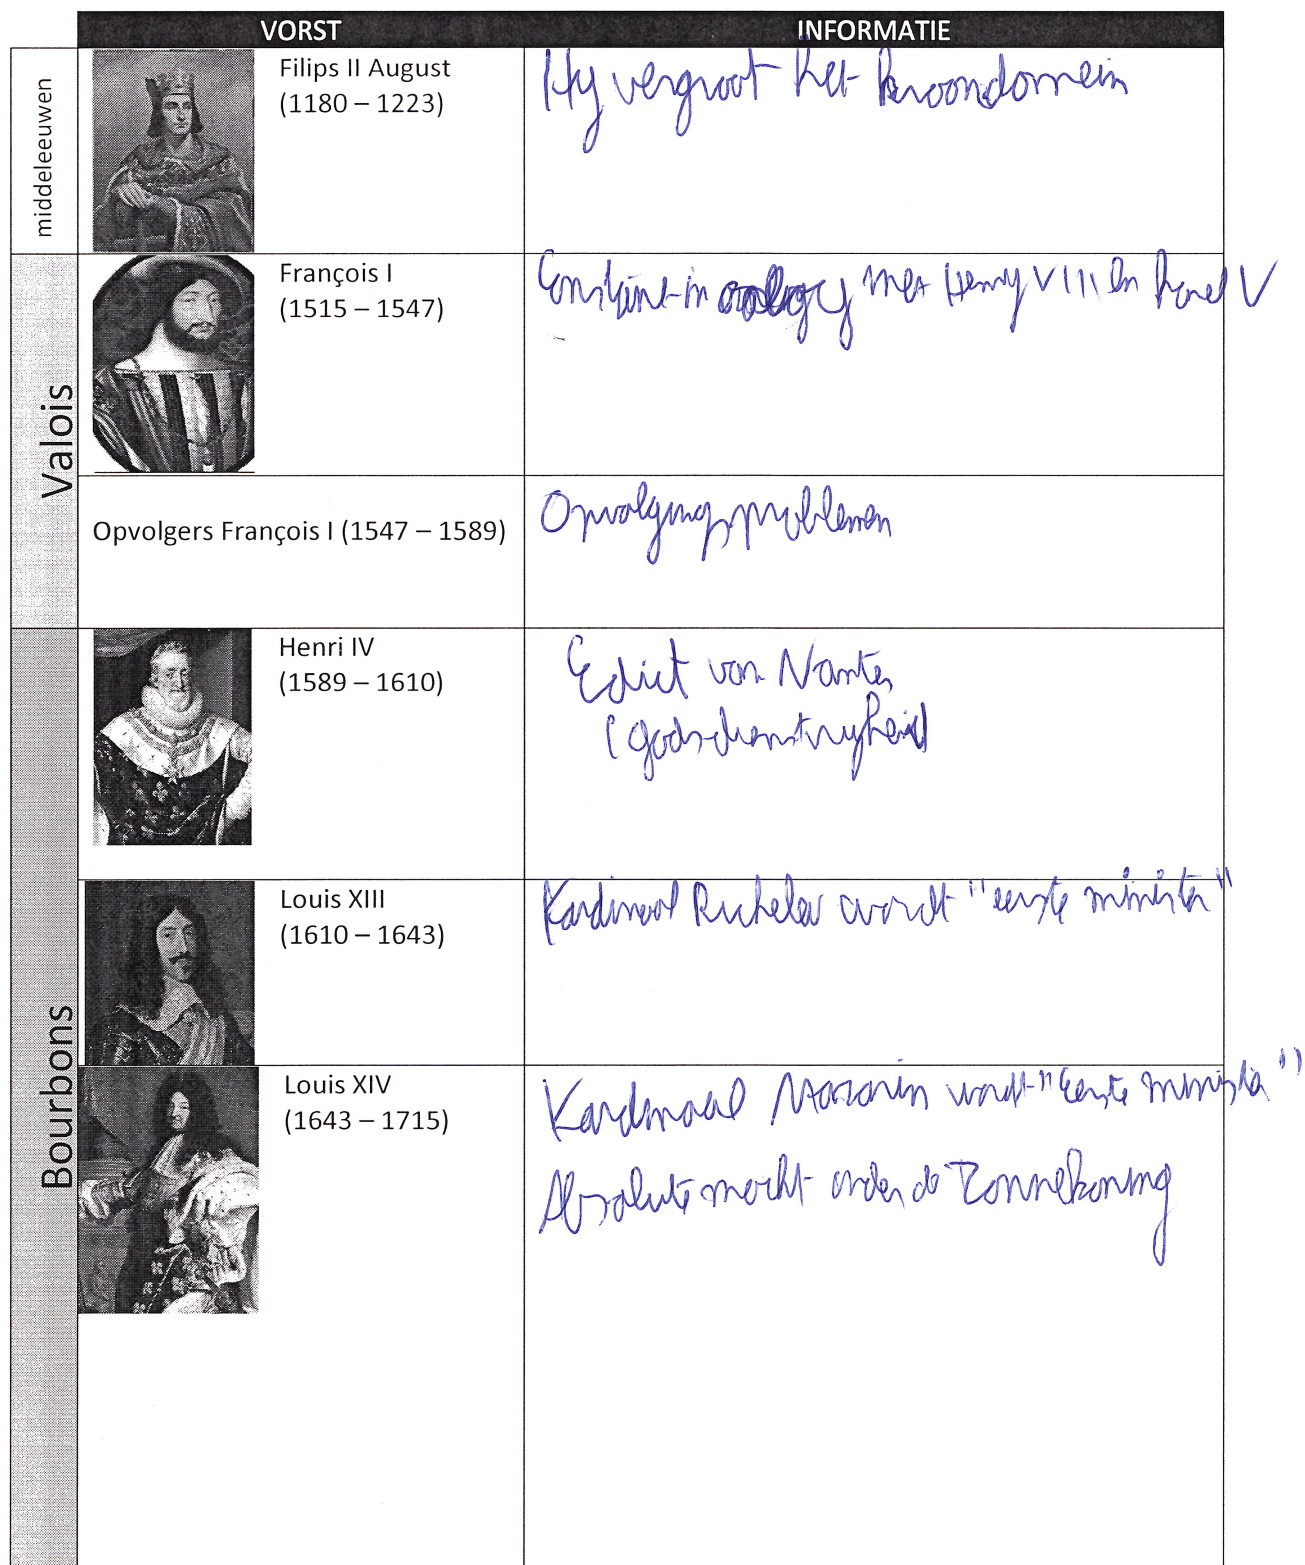 VORST INFORMATIE
middeleeuwen
Filips II August
(1180 – 1223)
Hij vergroot het kroondomein
Valois
François I
(1515 – 1547)
Constant in oorlog met Henry VIII en Karel V
Opvolgers François I (1547 – 1589)
Opvolgingsproblemen
Bourbons
Henri IV
(1589 – 1610)
Edict van Nantes
(godsdienstvrijheid
Louis XIII
(1610 – 1643)
Kardinaal Richelieu wordt "eerste minister"
Louis XIV
(1643 – 1715)
Kardinaal Mazarin wordt "Eerste minister"
Absolute macht onder de Zonnekoning